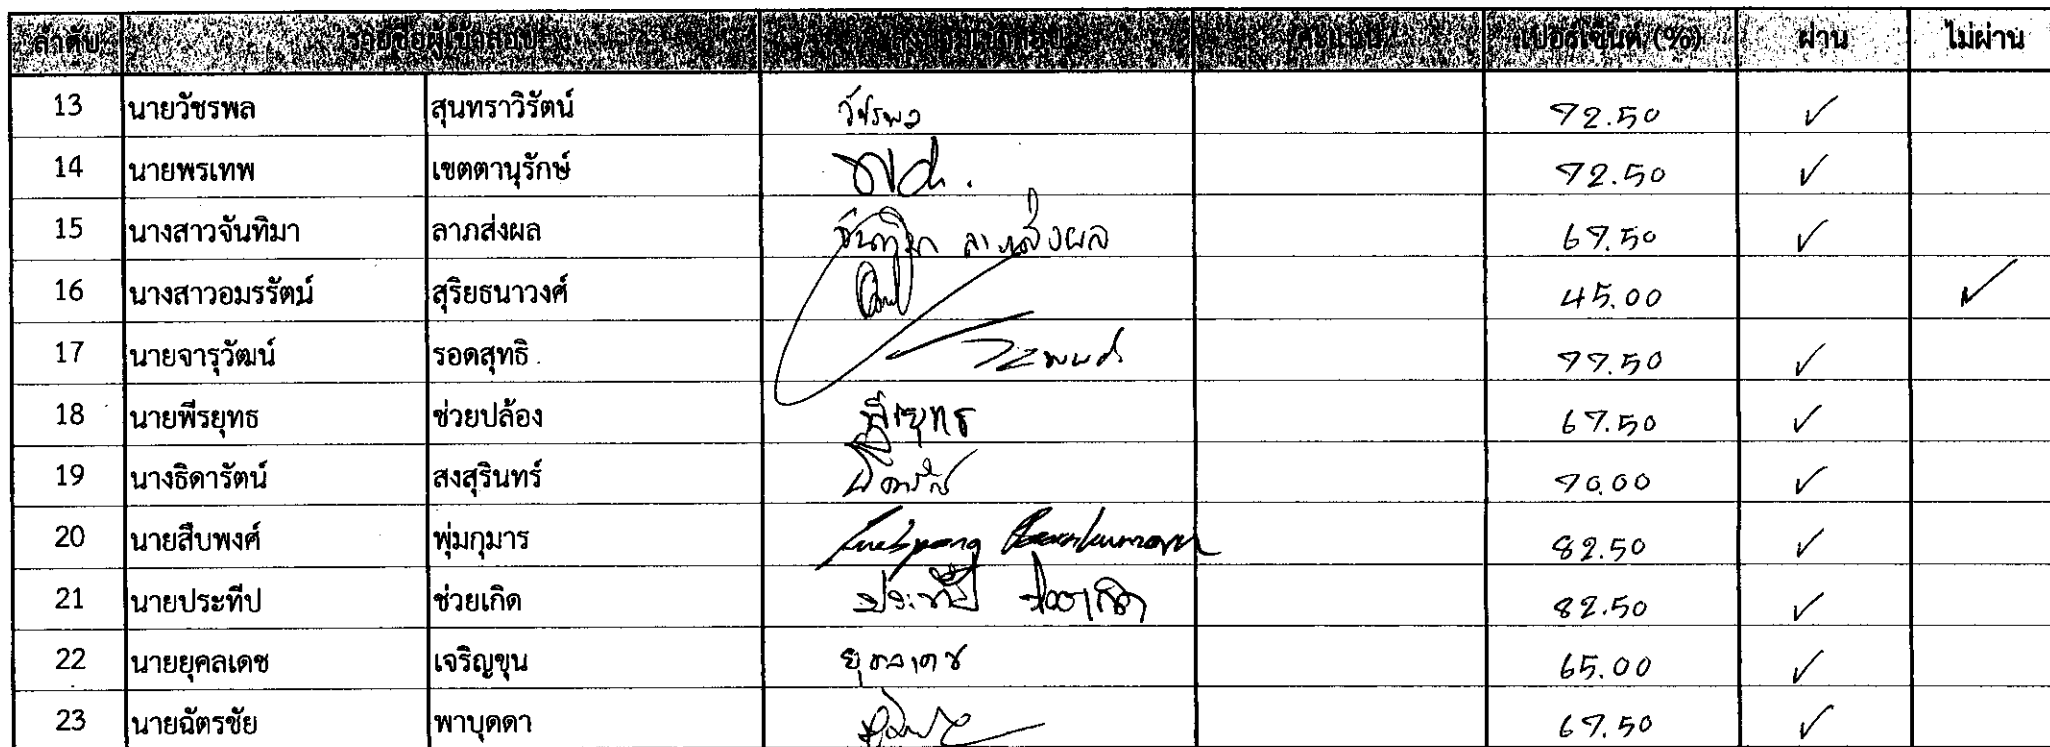 ลำดับ รายชื่อผู้เข้าสอบ คะแนน เปอร์เซ็นต์ (%) ผ่าน ไม่ผ่าน
13 นายวัชรพล สุนทราวิรัตน์ วัชรพล 72.50 ✓
14 นายพรเทพ เขตตานุรักษ์ 72.50 ✓
15 นางสาวจันทิมา ลาภส่งผล จันทิมา ลาภส่งผล 67.50 ✓
16 นางสาวอมรรัตน์ สุริยธนาวงศ์ 45.00 ✓
17 นายจารุวัฒน์ รอดสุทธิ 77.50 ✓
18 นายพีรยุทธ ช่วยปล้อง พีรยุทธ 67.50 ✓
19 นางธิดารัตน์ สงสุรินทร์ ธิดารัตน์ 70.00 ✓
20 นายสืบพงศ์ พุ่มกุมาร 82.50 ✓
21 นายประทีป ช่วยเกิด ประทีป ช่วยเกิด 82.50 ✓
22 นายยุคลเดช เจริญขุน ยุคลเดช 65.00 ✓
23 นายฉัตรชัย พาบุดดา 67.50 ✓